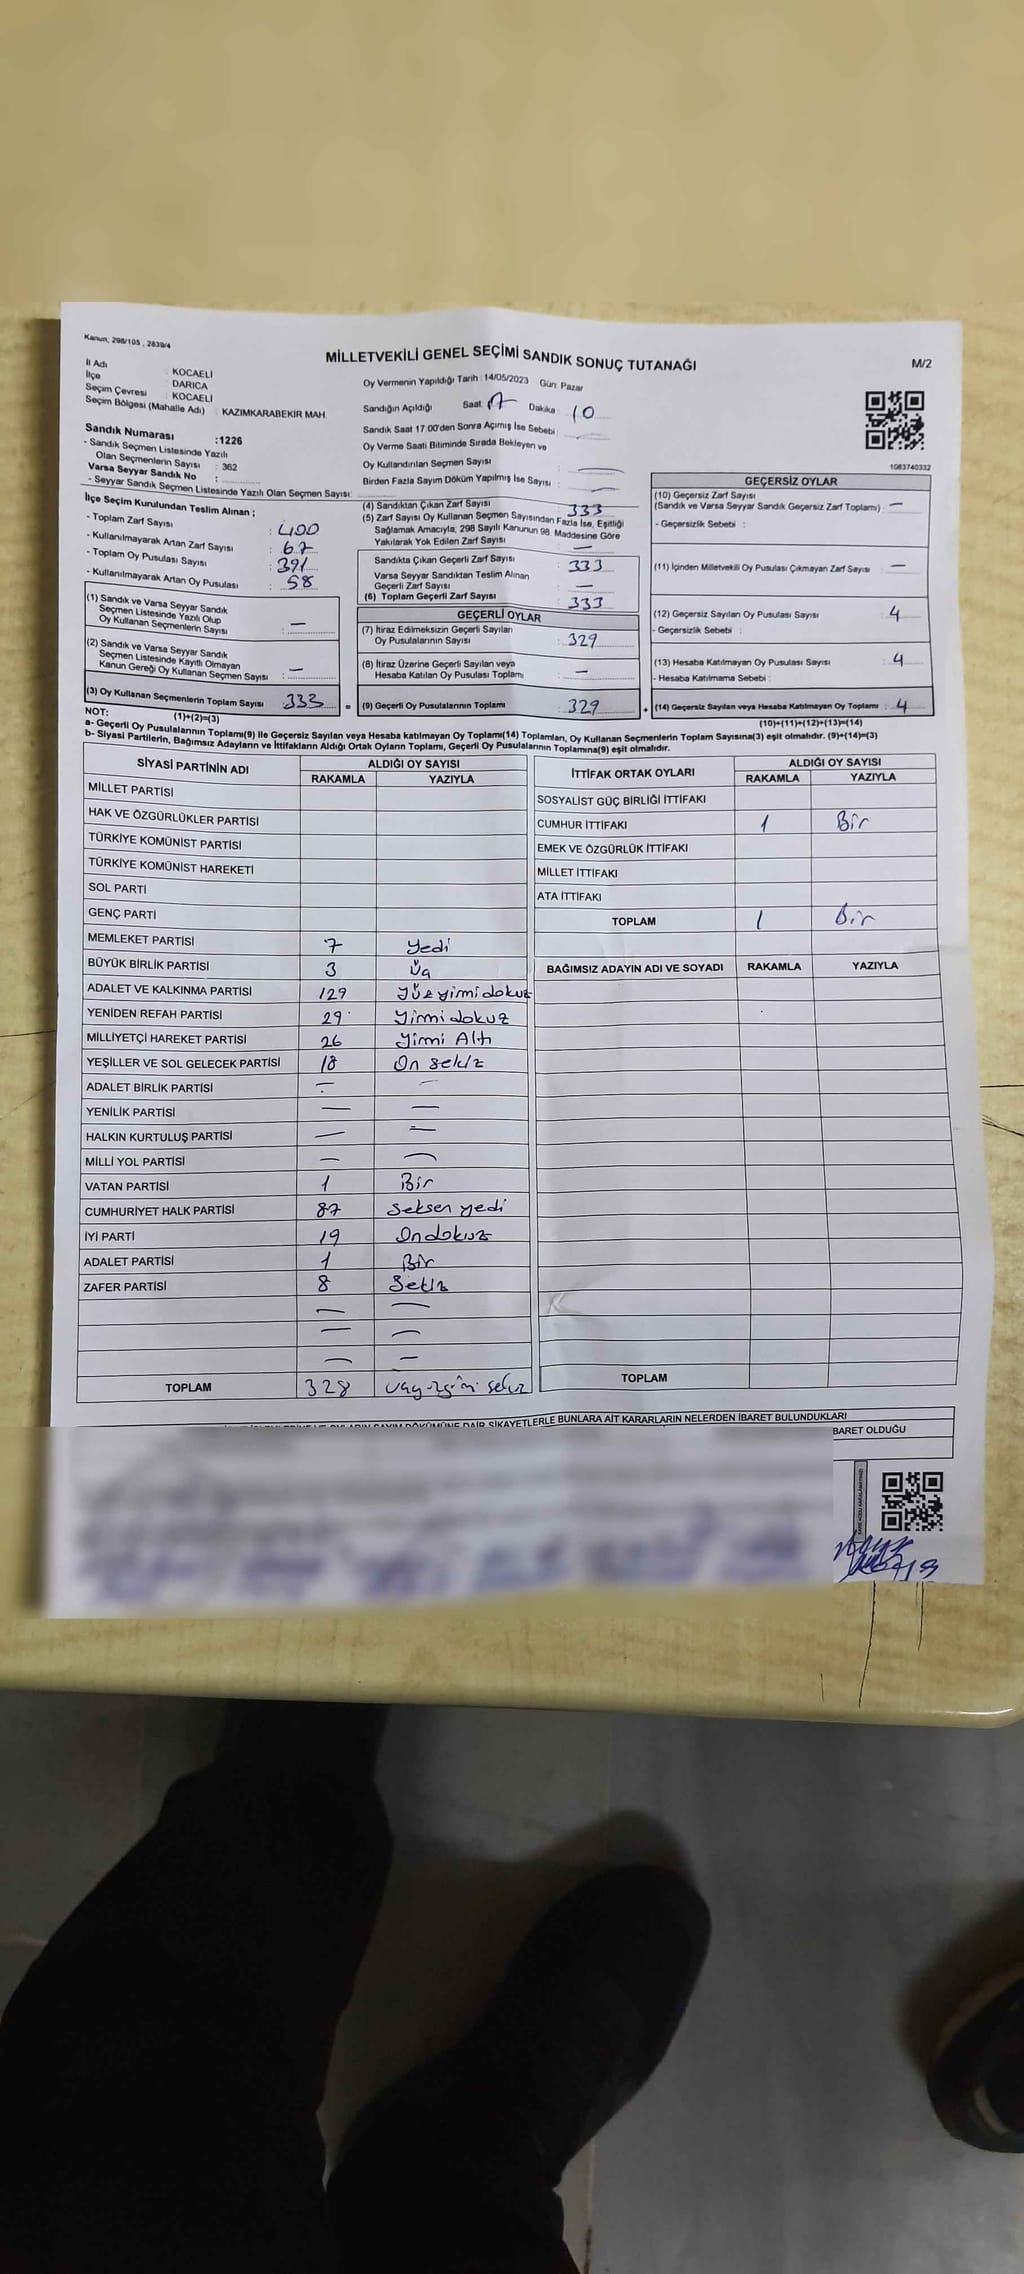 Kanun, 298/105 , 2839/4
MİLLETVEKİLİ GENEL SEÇİMİ SANDIK SONUÇ TUTANAĞI
M/2
İl Adı : KOCAELİ
İlçe : DARICA
Seçim Çevresi : KOCAELİ
Seçim Bölgesi (Mahalle Adı) : KAZIMKARABEKİR MAH
Sandık Numarası :1226
- Sandık Seçmen Listesinde Yazılı
Olan Seçmenlerin Sayısı : 362
Varsa Seyyar Sandık No :
- Seyyar Sandık Seçmen Listesinde Yazılı Olan Seçmen Sayısı:
Oy Vermenin Yapıldığı Tarih : 14/05/2023 Gün: Pazar
Sandığın Açıldığı Saat: 17 Dakika: 10
Sandık Saat 17.00'den Sonra Açılmış İse Sebebi :
Oy Verme Saati Bitiminde Sırada Bekleyen ve
Oy Kullandırılan Seçmen Sayısı : —
Birden Fazla Sayım Döküm Yapılmış İse Sayısı : —
1083740332
İlçe Seçim Kurulundan Teslim Alınan ;
- Toplam Zarf Sayısı : 400
- Kullanılmayarak Artan Zarf Sayısı : 67
- Toplam Oy Pusulası Sayısı : 391
- Kullanılmayarak Artan Oy Pusulası : 58
(1) Sandık ve Varsa Seyyar Sandık
Seçmen Listesinde Yazılı Olup
Oy Kullanan Seçmenlerin Sayısı : —
(2) Sandık ve Varsa Seyyar Sandık
Seçmen Listesinde Kayıtlı Olmayan
Kanun Gereği Oy Kullanan Seçmen Sayısı : —
(3) Oy Kullanan Seçmenlerin Toplam Sayısı : 333 =
(1)+(2)=(3)
(4) Sandıktan Çıkan Zarf Sayısı : 333
(5) Zarf Sayısı Oy Kullanan Seçmen Sayısından Fazla İse, Eşitliği
Sağlamak Amacıyla, 298 Sayılı Kanunun 98. Maddesine Göre
Yakılarak Yok Edilen Zarf Sayısı : —
Sandıkta Çıkan Geçerli Zarf Sayısı : 333
Varsa Seyyar Sandıktan Teslim Alınan
Geçerli Zarf Sayısı : —
(6) Toplam Geçerli Zarf Sayısı : 333
GEÇERLİ OYLAR
(7) İtiraz Edilmeksizin Geçerli Sayılan
Oy Pusulalarının Sayısı : 329
(8) İtiraz Üzerine Geçerli Sayılan veya
Hesaba Katılan Oy Pusulası Toplamı : —
(9) Geçerli Oy Pusulalarının Toplamı : 329 +
GEÇERSİZ OYLAR
(10) Geçersiz Zarf Sayısı
(Sandık ve Varsa Seyyar Sandık Geçersiz Zarf Toplamı) : —
- Geçersizlik Sebebi :
(11) İçinden Milletvekili Oy Pusulası Çıkmayan Zarf Sayısı : —
(12) Geçersiz Sayılan Oy Pusulası Sayısı : 4
- Geçersizlik Sebebi :
(13) Hesaba Katılmayan Oy Pusulası Sayısı : 4
- Hesaba Katılmama Sebebi :
(14) Geçersiz Sayılan veya Hesaba Katılmayan Oy Toplamı : 4
(10)+(11)+(12)+(13)=(14)
NOT:
a- Geçerli Oy Pusulalarının Toplamı(9) ile Geçersiz Sayılan veya Hesaba katılmayan Oy Toplamı(14) Toplamları, Oy Kullanan Seçmenlerin Toplam Sayısına(3) eşit olmalıdır. (9)+(14)=(3)
b- Siyasi Partilerin, Bağımsız Adayların ve İttifakların Aldığı Ortak Oyların Toplamı, Geçerli Oy Pusulalarının Toplamına(9) eşit olmalıdır.
SİYASİ PARTİNİN ADI ALDIĞI OY SAYISI
RAKAMLA YAZIYLA
MİLLET PARTİSİ
HAK VE ÖZGÜRLÜKLER PARTİSİ
TÜRKİYE KOMÜNİST PARTİSİ
TÜRKİYE KOMÜNİST HAREKETİ
SOL PARTİ
GENÇ PARTİ
MEMLEKET PARTİSİ 7 Yedi
BÜYÜK BİRLİK PARTİSİ 3 Üç
ADALET VE KALKINMA PARTİSİ 129 Yüzyirmidokuz
YENİDEN REFAH PARTİSİ 29 Yirmidokuz
MİLLİYETÇİ HAREKET PARTİSİ 26 Yirmi Altı
YEŞİLLER VE SOL GELECEK PARTİSİ 18 On sekiz
ADALET BİRLİK PARTİSİ — —
YENİLİK PARTİSİ — —
HALKIN KURTULUŞ PARTİSİ — —
MİLLİ YOL PARTİSİ — —
VATAN PARTİSİ 1 Bir
CUMHURİYET HALK PARTİSİ 87 Seksen yedi
İYİ PARTİ 19 Ondokuz
ADALET PARTİSİ 1 Bir
ZAFER PARTİSİ 8 Sekiz
— —
— —
— —
TOPLAM 328
İTTİFAK ORTAK OYLARI ALDIĞI OY SAYISI
RAKAMLA YAZIYLA
SOSYALİST GÜÇ BİRLİĞİ İTTİFAKI
CUMHUR İTTİFAKI 1 Bir
EMEK VE ÖZGÜRLÜK İTTİFAKI
MİLLET İTTİFAKI
ATA İTTİFAKI
TOPLAM 1 Bir
BAĞIMSIZ ADAYIN ADI VE SOYADI RAKAMLA YAZIYLA
TOPLAM
OYLARIN SAYIM DÖKÜMÜNE DAİR ŞİKAYETLERLE BUNLARA AİT KARARLARIN NELERDEN İBARET BULUNDUKLARI
BARET OLDUĞU